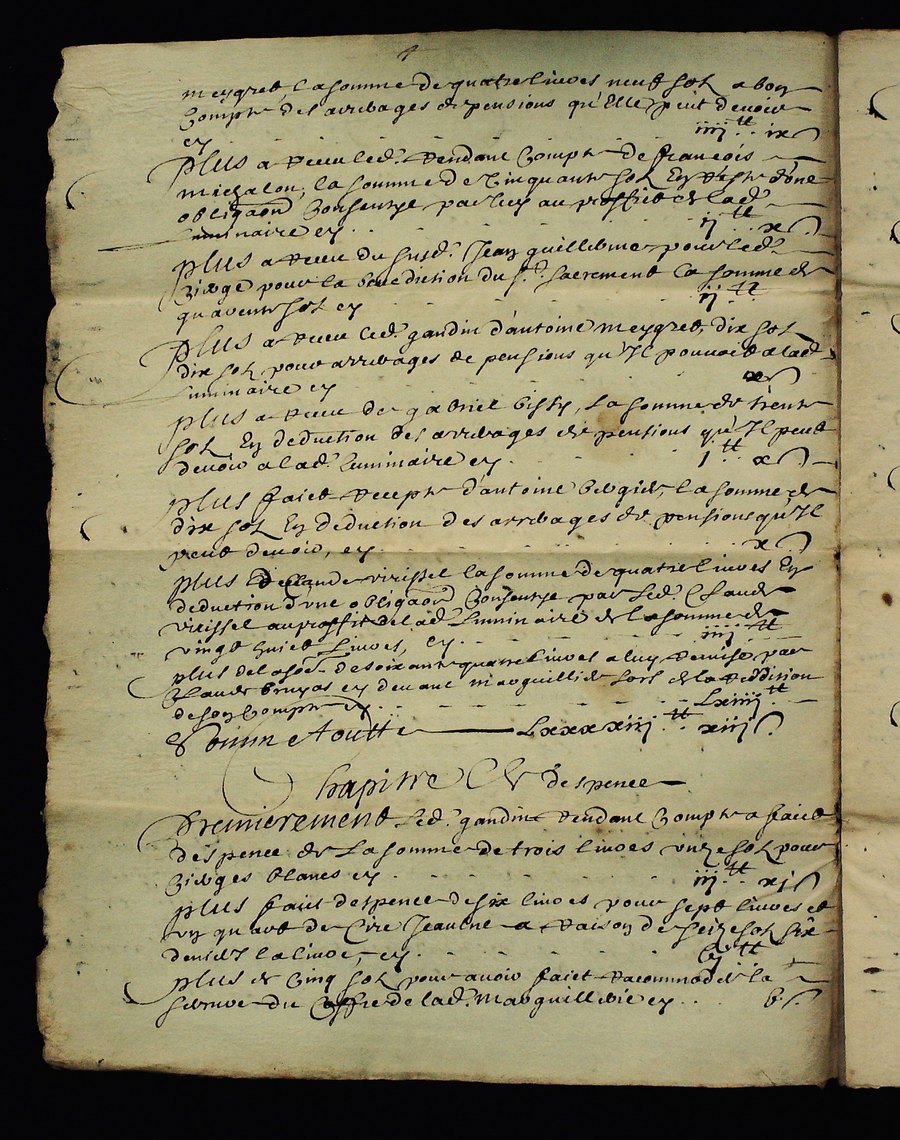 4
meygret la somme de quatre livres neuf solz a bon
Compte des arrerages de pensions qu'Elle peut devoir
en iiij ᵗᵗ ix s
plus a Receu led. Rendant Compte de françois
michalon, la somme de Cinquante solz En reste d'une
obligaon Consentye par luy au proffit de lad.
Luminaire en . ij ᵗᵗ . x s
plus a Receu du susd. Jean guillerme pour led.
Cierge pour la benediction du st. sacrement la somme de
quarente solz en . . . . ij ᵗᵗ
plus a Receu led. gandin d'antoine meygret, dix solz
dix solz pour arrerages de pensions qu'Il pouvoit a lad.
Luminaire en x s
plus a Receu de gabriel , La somme de trente
solz En deduction des arrerages de pensions qu'Il peut
devoir a lad. Luminaire en . . . . j ᵗᵗ x s
plus faict Recepte d'antoine bergier, la somme de
dix solz En deduction des arrerages de pensions qu'Il
peut devoir, en . . . . x s
plus de Claude virissel la somme de quatre livres En
deduction d'une obligaon Consentye par led. Claude
virissel au proffit de lad. Luminaire de la somme de
vingt huict Livres, en . . . . iiij ᵗᵗ
plus de la some de soixante quatre livres a luy Remise par
Claude bruyas cy devant marguillier lors de la Reddition
de son Compte en . . . . Lxiiij ᵗᵗ
Somme toutte Lxxxxiiij ᵗᵗ xiiij s
Chapitre de despence
Premierement Led. gandin Rendant Compte a faict
despence de La somme de trois livres unze solz pour
Cierges blancs en . . . . iij ᵗᵗ xj s
plus faict despence de six livres pour sept livres et
un quart de Cire Jeaulne a Raison de seize solz six
deniers la livre, en . . . . vj ᵗᵗ
plus de Cinq solz pour avoir faict Racommoder la
serrure du Coffre de lad. Marguillerie en . . v s